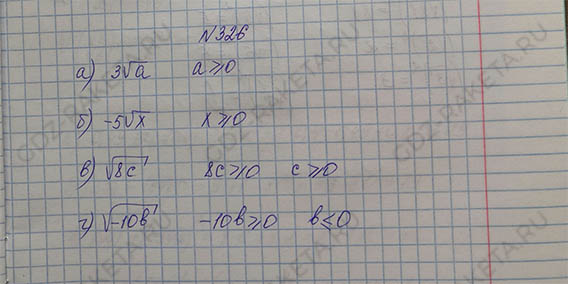 №326
а) 3√a a⩾0
б) -5√x x⩾0
в) √8c 8c⩾0 c⩾0
г) √-10b -10b⩾0 b⩽0
GDZ-RAKETA.RU
GDZ-RAKETA.RU